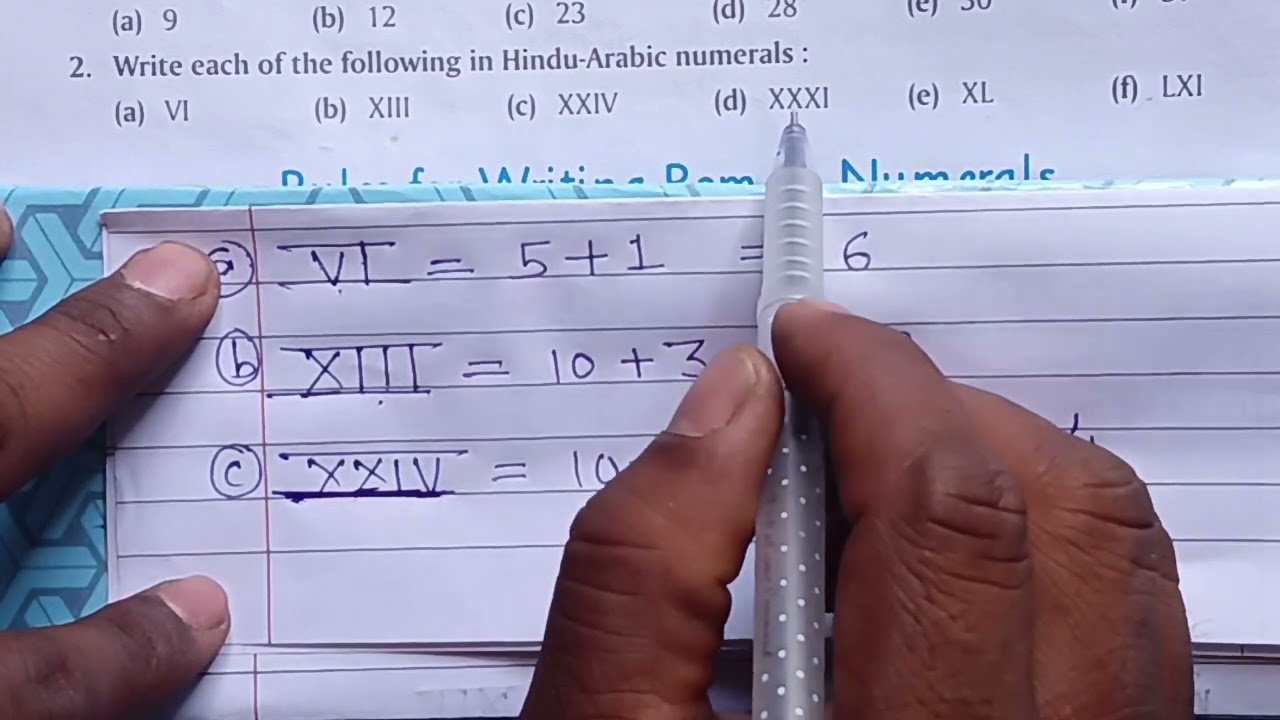 (a) 9 (b) 12 (c) 23 (d) 28 (e) 30
2. Write each of the following in Hindu-Arabic numerals :
(a) VI (b) XIII (c) XXIV (d) XXXI (e) XL (f) LXI
Rules for Writing Roman Numerals
a VI = 5+1 = 6
b XIII = 10 + 3
c XXIV = 10